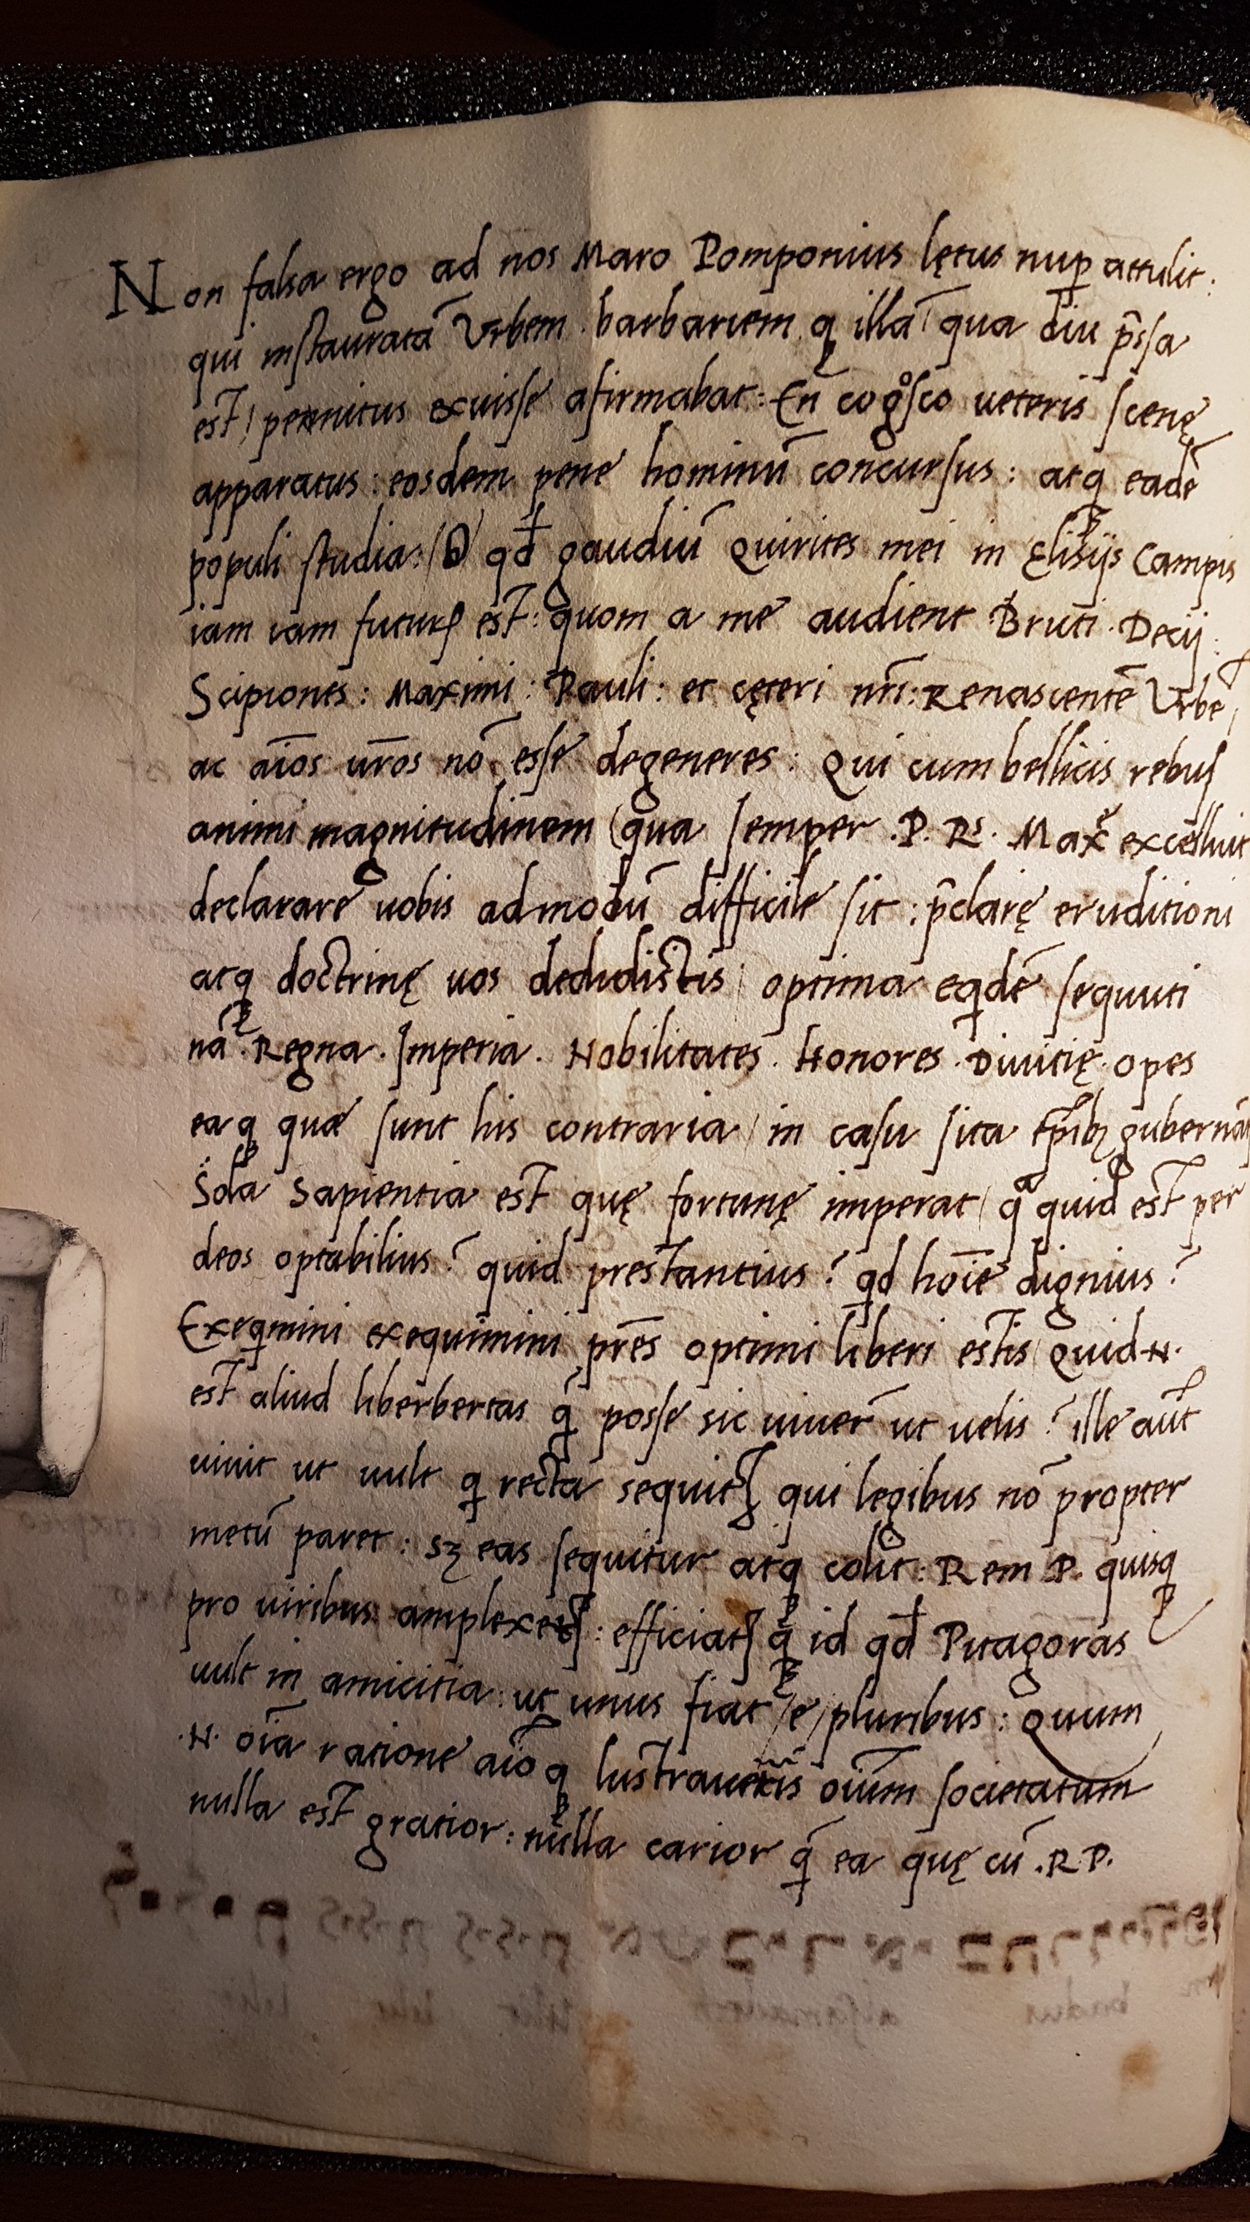 Non falsa ergo ad nos Maro Pomponius lętus nup̱ attulit:
qui instauratã Vrbem. barbariem q̨ illã qua diu p̃ssa
est/ penitus exuisse afirmabat: En cogºsco ueteris scenę
apparatus: eosdem pene hominũ concursus: atq̨ eadẽ
populi studia:/ O qđ gaudiũ Quirites mei in Elisijs Campis
iam iam futurꝭ est: quom a me audient Bruti. Decij.
Scipiones: Maximi: Pauli: et cęteri nr̃i: Renascentẽ Vrbẽ/
ac aĩos ur̃os nõ esse degeneres: Qui cum bellicis rebus
animi magnitudinem (qua semper .P. Rˢ. Maxᵉ excelluit
declarare uobis admodũ difficile sit: p̃clarę eruditioni
atq̨ doctrinę uos dedidistis/ optima eqdẽ sequuti
nã. Regna. Imperia. Nobilitates. Honores. Diuitię. opes
eaq̨ quæ sunt his contraria/ in casu sita tp̃ibꝫ gubernãt
Sola Sapientia est quę fortunę imperat/ qª quid est per
deos optabilius? quid prestantius? qd hoĩe dignius?
Exeqmini exequimini pr̃es optimi liberi estis/ Quid .N.
est aliud liberbertas q̃ posse sic uiuer̃ ut uelis? ille aut̃
uiuit ut uult q recta sequitꝝ qui legibus nõ propter
metũ paret: sꝫ eas sequitur atq̨ colit: Rem .P. quisq̨
pro uiribus amplexetꝝ: efficiatꝝ q̨ id qđ Pitagoras
uult in amicitia: ut unus fiat /e/ pluribus: Quum
.N. oĩa ratione aĩoq̨ lustraueritis oiũm societatum
nulla est gratior: nulla carior q̃ ea quę cũ .R.P.